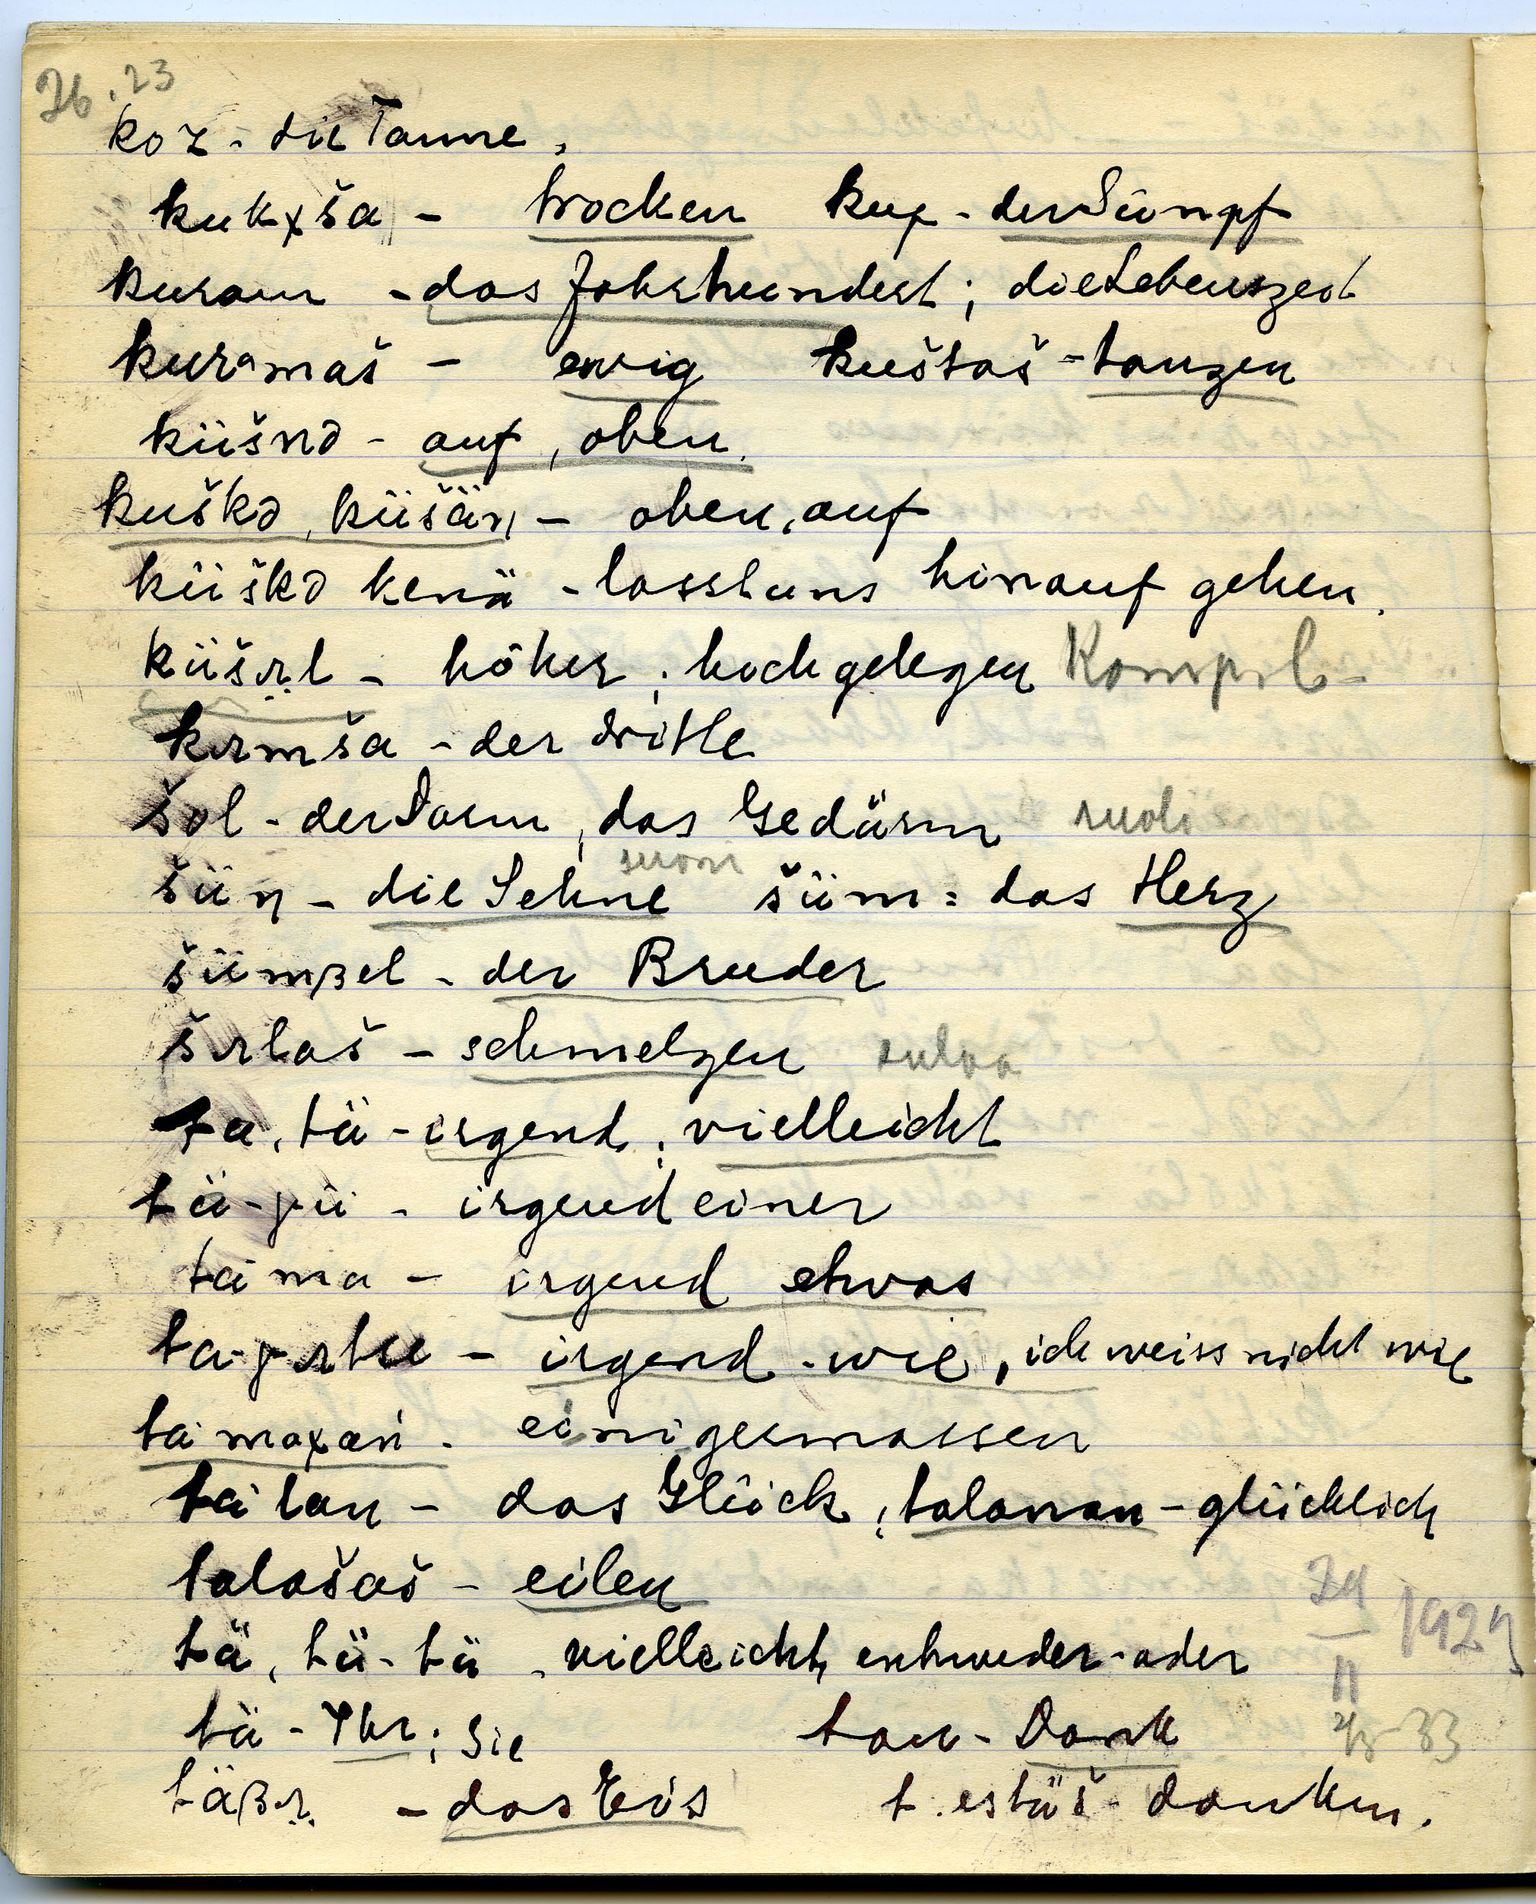 26.23
koz - die Tanne,
kukχša - trocken kup - der Sümpf
kuram - das Jahrhundert; die Lebenszeit
kuramaš - ewig kuštaš - tanzen
küšnə - auf, oben.
kuškə, küšän - oben, auf
küškə kenä - lasst uns hinauf gehen.
küšəl - höher; hoch gelegen Kompil-
kəmša - der dritte
šol - der Darm, das Gedärm suoli
suoni
šün - die Sehne šüm = das Herz
šümβel - der Bruder
šəlaš - schmelzen sulaa
ta, tä - irgend; vielleicht
tä-γü - irgend einer
tama - irgend etwas
irgend - wie, ich weiss nicht wie
tamaχań - einigermassen
talan - das Glück, talanan - glücklich
talašaš - eilen
tä, tä - tä - vielleicht, entweder - oder
tä - Ihr; Sie tau - Dank
- das Eis t. estäš - danken.
24
II
1929
2/3 33